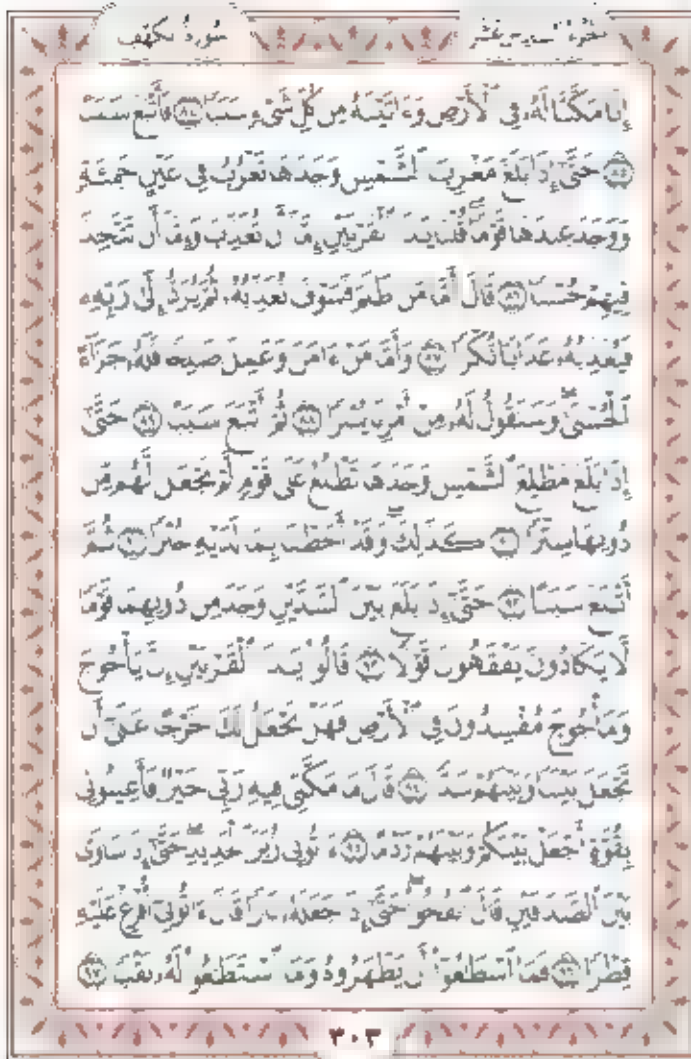 الجزء السادس عشر سورة الكهف
إِنَّا مَكَّنَّا لَهُۥ فِى ٱلْأَرْضِ وَءَاتَيْنَـٰهُ مِن كُلِّ شَىْءٍ سَبَبًا ٨٤ فَأَتْبَعَ سَبَبًا
٨٥ حَتَّىٰٓ إِذَا بَلَغَ مَغْرِبَ ٱلشَّمْسِ وَجَدَهَا تَغْرُبُ فِى عَيْنٍ حَمِئَةٍ
وَوَجَدَ عِندَهَا قَوْمًا قُلْنَا يَـٰذَا ٱلْقَرْنَيْنِ إِمَّآ أَن تُعَذِّبَ وَإِمَّآ أَن تَتَّخِذَ
فِيهِمْ حُسْنًا ٨٦ قَالَ أَمَّا مَن ظَلَمَ فَسَوْفَ نُعَذِّبُهُۥ ثُمَّ يُرَدُّ إِلَىٰ رَبِّهِۦ
فَيُعَذِّبُهُۥ عَذَابًا نُّكْرًا ٨٧ وَأَمَّا مَنْ ءَامَنَ وَعَمِلَ صَـٰلِحًا فَلَهُۥ جَزَآءً
ٱلْحُسْنَىٰ وَسَنَقُولُ لَهُۥ مِنْ أَمْرِنَا يُسْرًا ٨٨ ثُمَّ أَتْبَعَ سَبَبًا ٨٩ حَتَّىٰٓ
إِذَا بَلَغَ مَطْلِعَ ٱلشَّمْسِ وَجَدَهَا تَطْلُعُ عَلَىٰ قَوْمٍ لَّمْ نَجْعَل لَّهُم مِّن
دُونِهَا سِتْرًا ٩٠ كَذَٰلِكَ وَقَدْ أَحَطْنَا بِمَا لَدَيْهِ خُبْرًا ٩١ ثُمَّ
أَتْبَعَ سَبَبًا ٩٢ حَتَّىٰٓ إِذَا بَلَغَ بَيْنَ ٱلسَّدَّيْنِ وَجَدَ مِن دُونِهِمَا قَوْمًا
لَّا يَكَادُونَ يَفْقَهُونَ قَوْلًا ٩٣ قَالُوا۟ يَـٰذَا ٱلْقَرْنَيْنِ إِنَّ يَأْجُوجَ
وَمَأْجُوجَ مُفْسِدُونَ فِى ٱلْأَرْضِ فَهَلْ نَجْعَلُ لَكَ خَرْجًا عَلَىٰٓ أَن
تَجْعَلَ بَيْنَنَا وَبَيْنَهُمْ سَدًّا ٩٤ قَالَ مَا مَكَّنِّى فِيهِ رَبِّى خَيْرٌ فَأَعِينُونِى
بِقُوَّةٍ أَجْعَلْ بَيْنَكُمْ وَبَيْنَهُمْ رَدْمًا ٩٥ ءَاتُونِى زُبَرَ ٱلْحَدِيدِ حَتَّىٰٓ إِذَا سَاوَىٰ
بَيْنَ ٱلصَّدَفَيْنِ قَالَ ٱنفُخُوا۟ حَتَّىٰٓ إِذَا جَعَلَهُۥ نَارًا قَالَ ءَاتُونِىٓ أُفْرِغْ عَلَيْهِ
قِطْرًا ٩٦ فَمَا ٱسْطَـٰعُوٓا۟ أَن يَظْهَرُوهُ وَمَا ٱسْتَطَـٰعُوا۟ لَهُۥ نَقْبًا ٩٧
٣٠٣